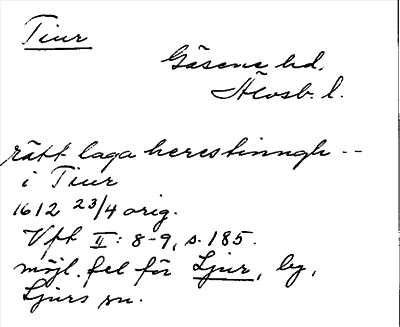 Tiur
Gäsene hd.
Älvsb. l.
rätt laga herestinngh --
i Tiur
1612 23/4 orig.
Vft II: 8-9, s. 185.
möjl. fel för Ljur, by,
Ljurs sn.